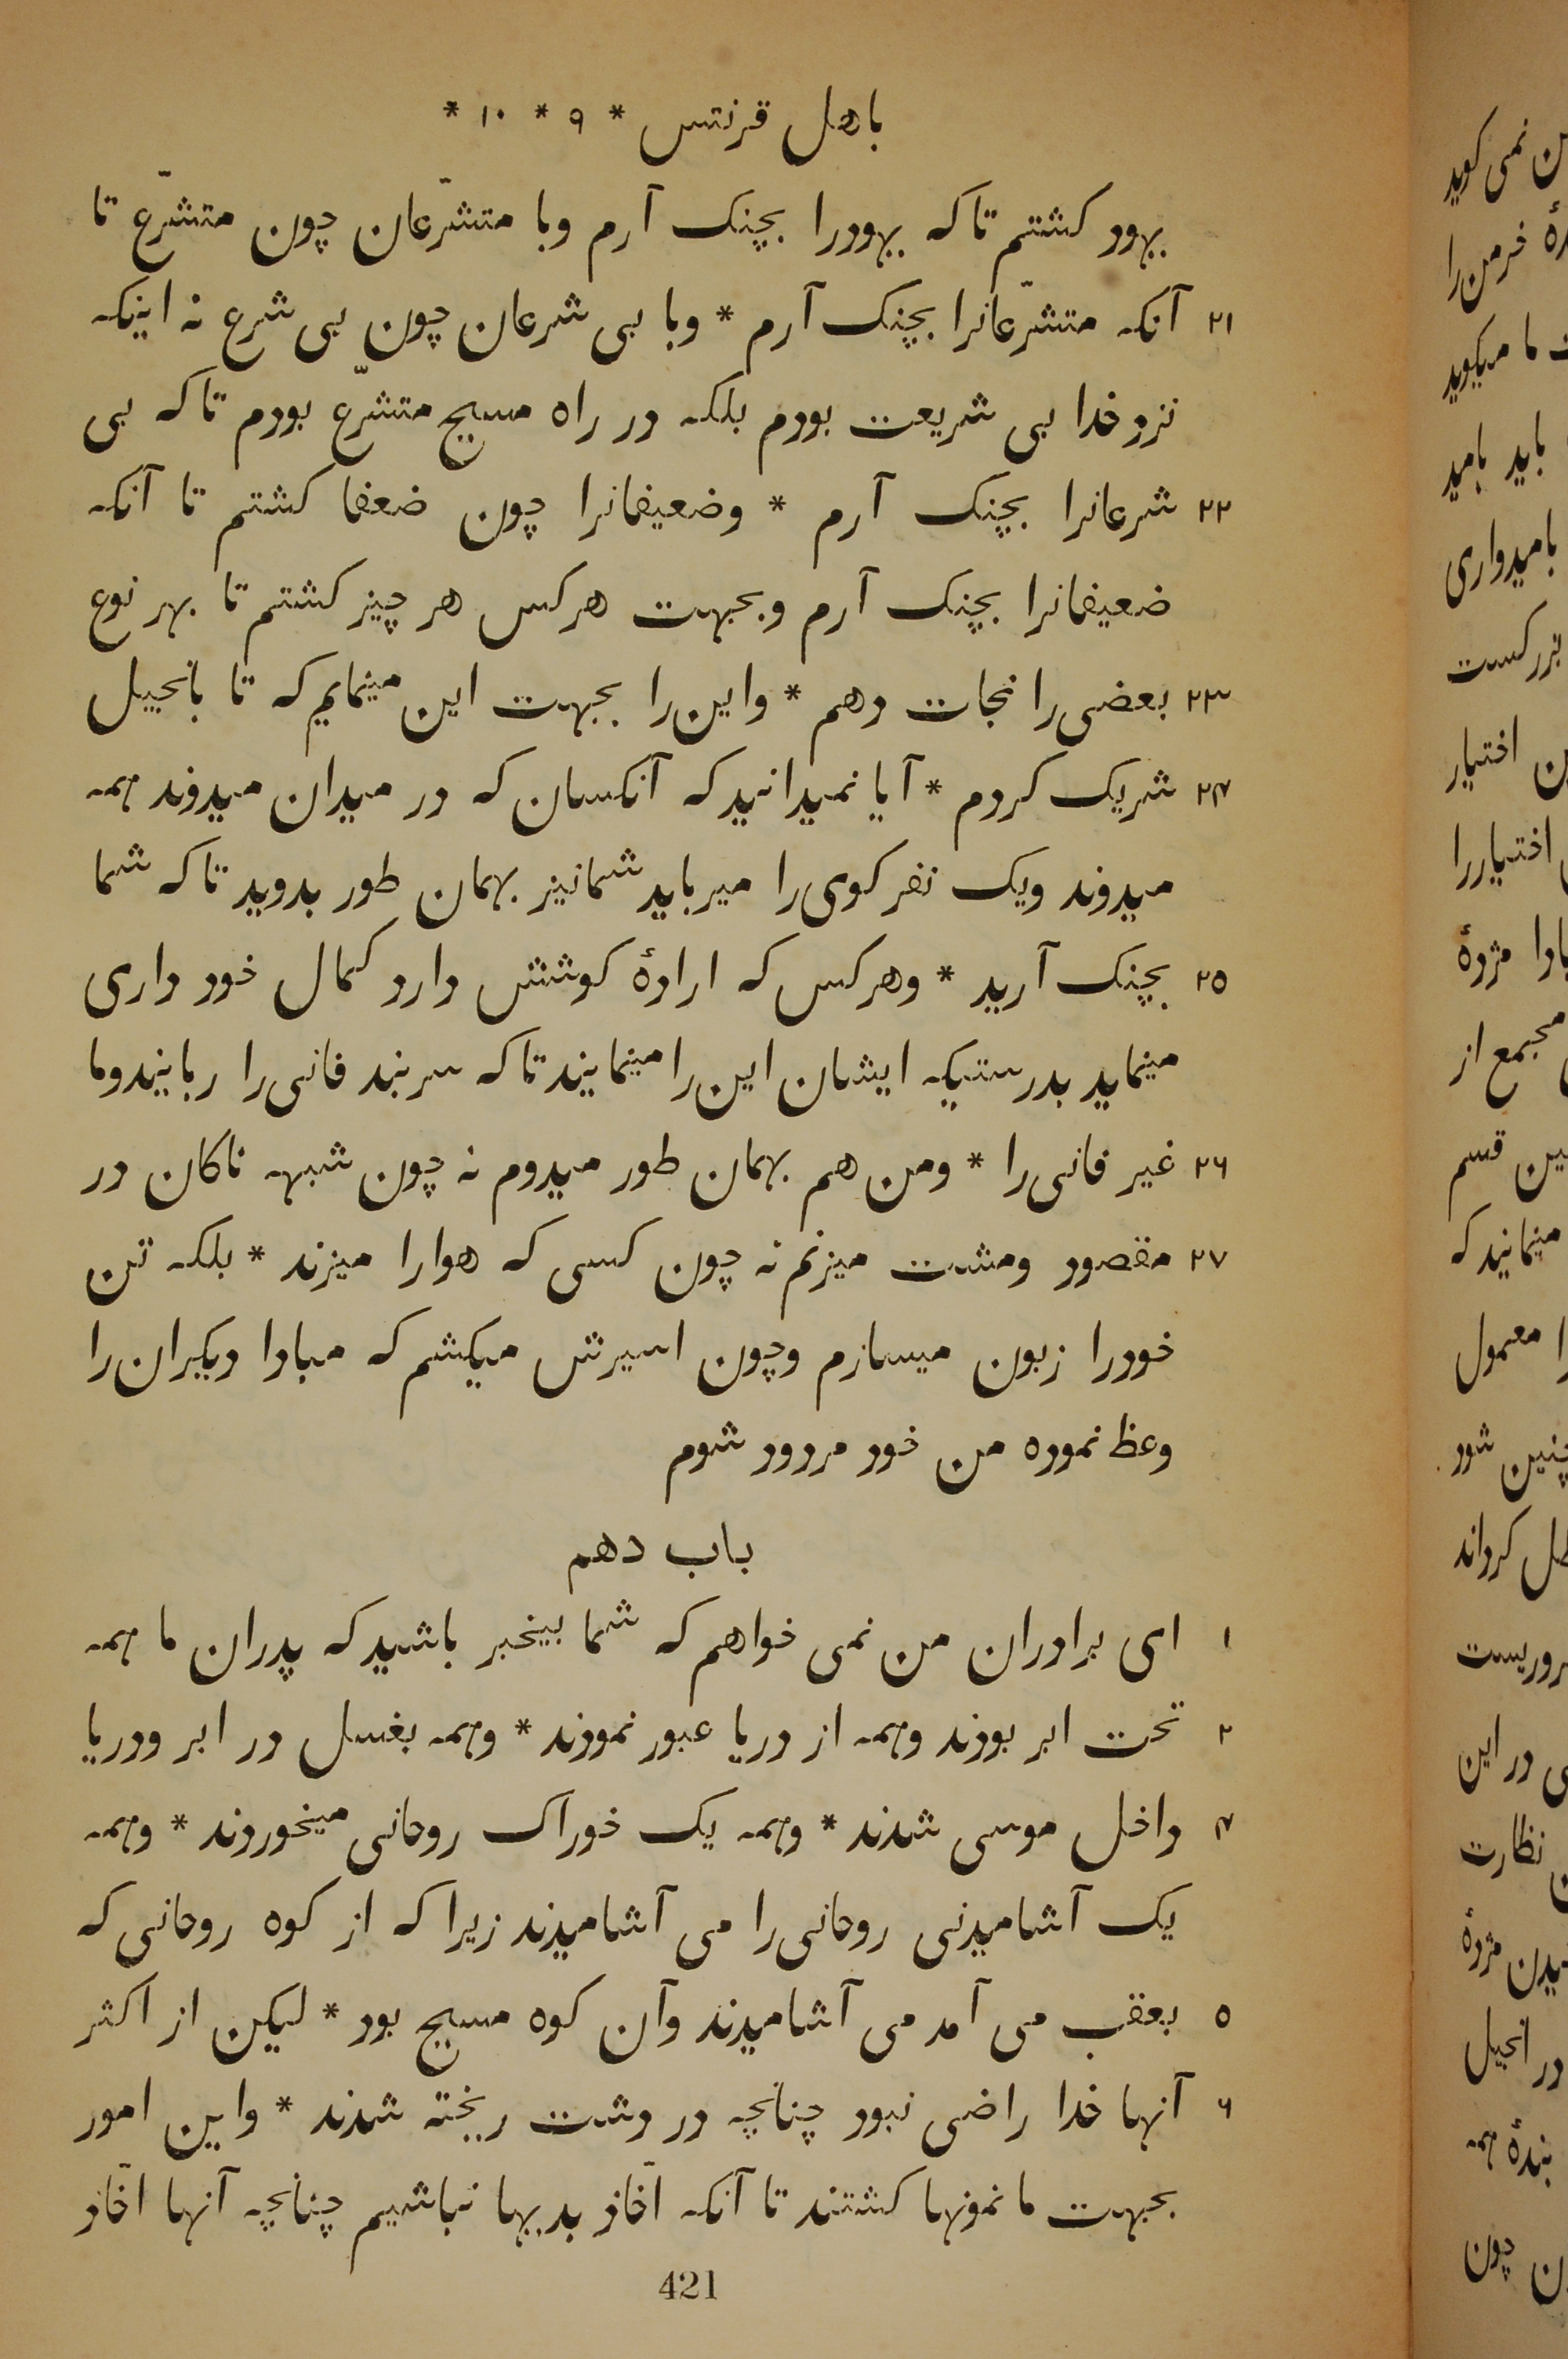 باهل قرنتس * ۹ * ۱۰ *
یهود کشتم تا که یهودرا بچنک آرم وبا متشرّعان چون متشرّع تا
۲۱ آنکه متشرّعانرا بچنک آرم * وبا بی شرعان چون بی شرع نه اینکه
نزد خدا بی شریعت بودم بلکه در راه مسیح متشرّع بودم تا که بی
۲۲ شرعانرا بچنک آرم * وضعیفانرا چون ضعفا کشتم تا آنکه
ضعیفانرا بچنک آرم وبجهت هرکس هر چیز کشتم تا بهر نوع
۲۳ بعضی را نجات دهم * واین را بجهت این مینمایم که تا بانجیل
۲۴ شریک کردم * آیا نمیدانید که آنکسان که در میدان میدوند همه
میدوند ویک نفر کوی را میرباید شمانیز بهمان طور بدوید تا که شما
۲۵ بچنک آرید * وهرکس که ارادهٔ کوشش دارد کمال خود داری
مینماید بدرستیکه ایشان این را مینمایند تا که سربند فانی را ربایند وما
۲۶ غیر فانی را * ومن هم بهمان طور میدوم نه چون شبهه ناکان در
۲۷ مقصود ومشت میزنم نه چون کسی که هوارا میزند * بلکه تن
خودرا زبون میسازم وچون اسیرش میکشم که مبادا دیکران را
وعظ نموده من خود مردود شوم
باب دهم
۱ ای برادران من نمی خواهم که شما بیخبر باشید که پدران ما همه
۲ تحت ابر بودند وهمه از دریا عبور نمودند * وهمه بغسل در ابر ودریا
۴ داخل موسی شدند * وهمه یک خوراک روحانی میخوردند * وهمه
یک آشامیدنی روحانی را می آشامیدند زیرا که از کوه روحانی که
۵ بعقب می آمد می آشامیدند وآن کوه مسیح بود * لیکن از اکثر
۶ آنها خدا راضی نبود چنانچه در دشت ریخته شدند * واین امور
بجهت ما نمونها کشتند تا آنکه اخّاذ بدیها نباشیم چنانچه آنها اخّاذ
421
ن نمی کوید
خرمن را
ما میکوید
باید بامید
بامیدواری
بزرکست
اختیار
اختیاررا
مژدهٔ
مجمع از
قسم
مینمایند که
معمول
چنین شود
کرداند
در این
نظارت
مژدهٔ
در انجیل
بندهٔ همه
چون